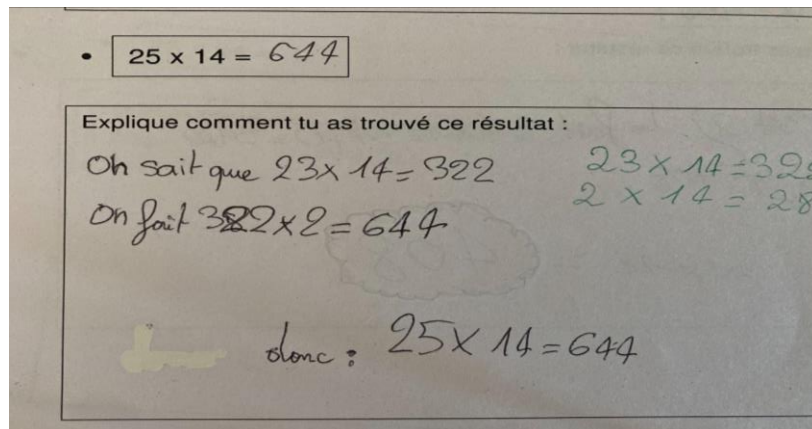 • 25 x 14 = 644
Explique comment tu as trouvé ce résultat :
On sait que 23 x 14 = 322
On fait 322 x 2 = 644
23 x 14 = 322
2 x 14 = 28
donc : 25 x 14 = 644